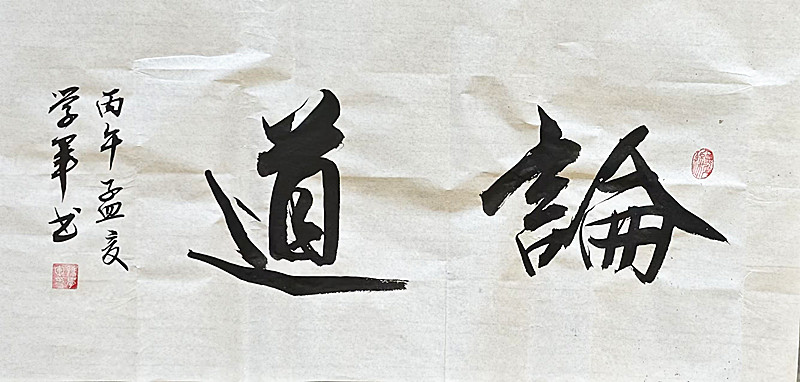 論道
丙午孟夏
学军书